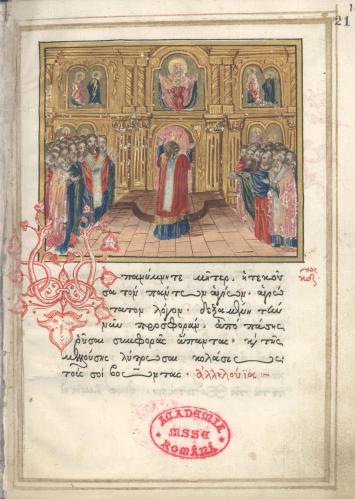 21
πανύμνητε μῆτερ, ἡ τεκοῦ
σα τὸν πάντων ἁγίων, ἁγιώ
τατον λόγον· δεξαμένη τὴν
νῦν προσφορὰν, ἀπὸ πάσης
ῥῦσαι συμφορᾶς ἅπαντας· κ τῆς
μελλούσης λύτρωσαι κολάσεως
τοὺς σοὶ βοῶντας· ἀλληλούια
ACADEMIA
MSSE
ROMÂNĂ